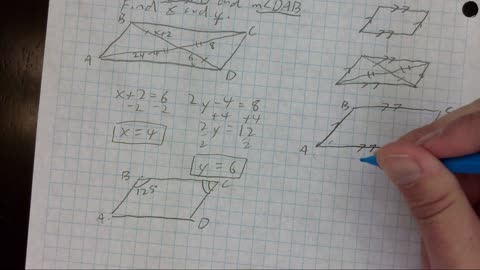 and m∠DAB
Find x and y.
B
C
x+2
8
2y-4
6
A
D
x+2=6
-2 -2
x=4
2y-4=8
+4 +4
2y=12
2 2
y=6
B
C
125
A
D
B
C
A